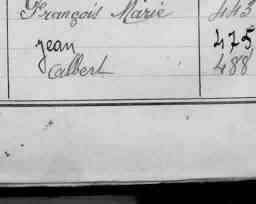 François Marie 443
Jean 475
Albert 488